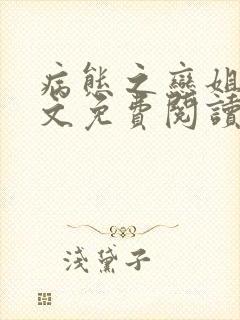 病態之戀姐
文免費閱讀
淺黛子